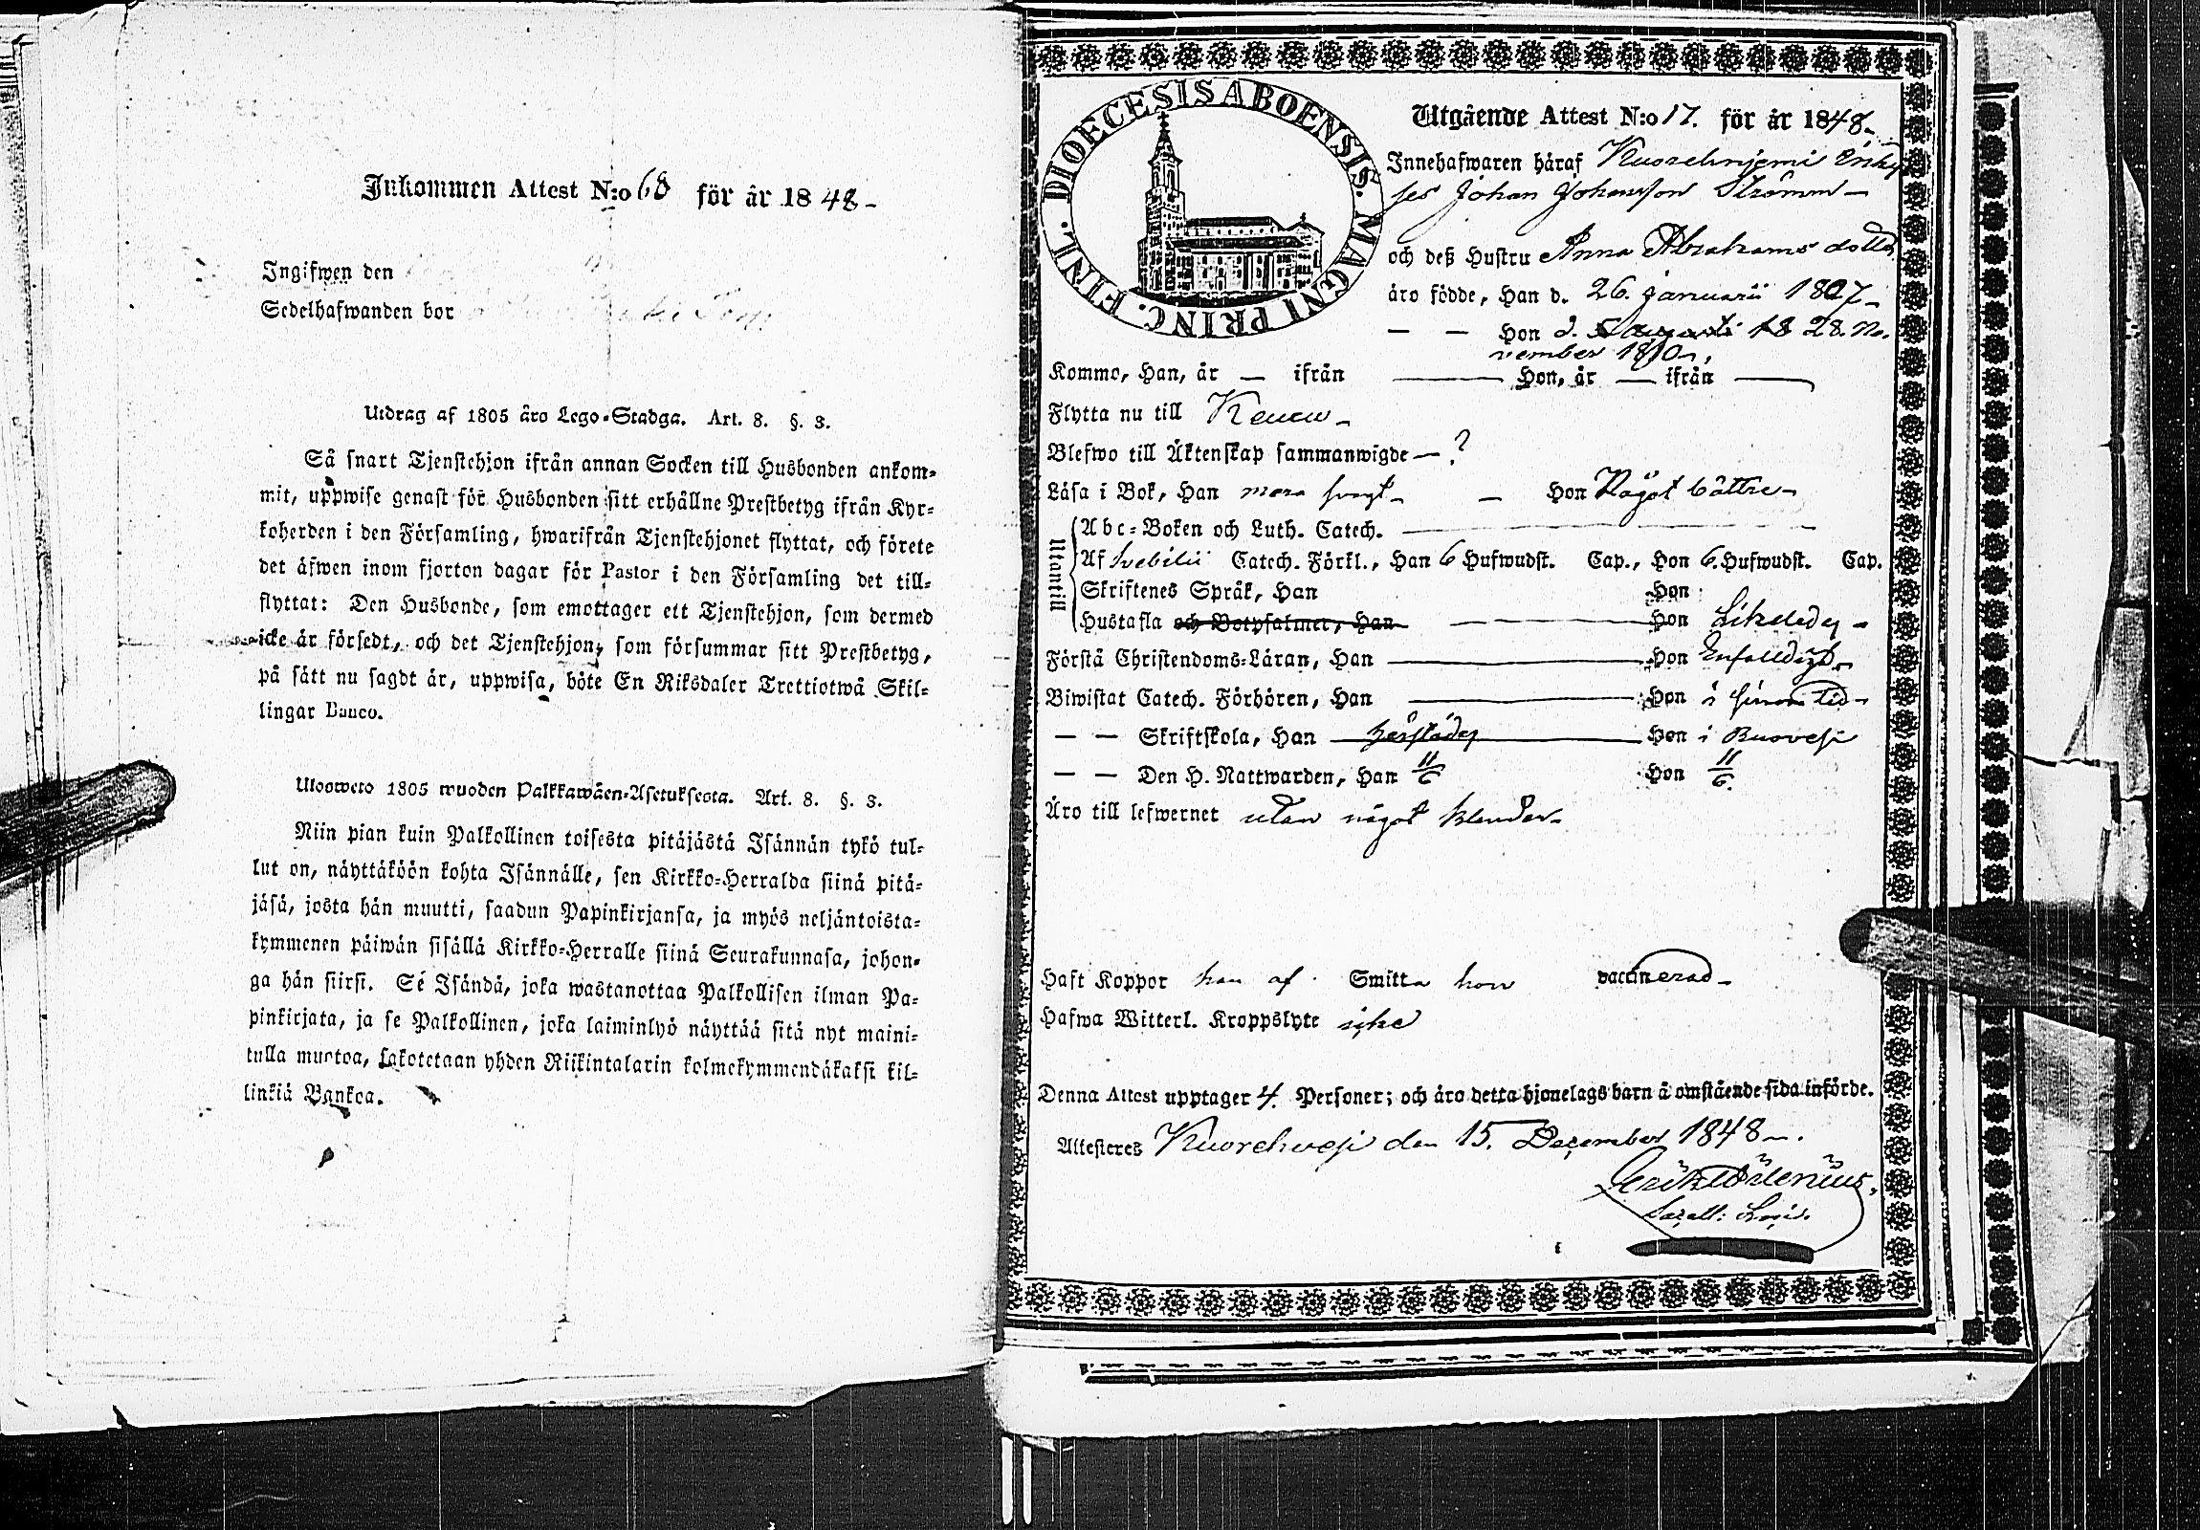 Inkommen Attest N:o 68 för år 1848-
Ingifwen den
Sedelhafwanden bor
Utdrag af 1805 åro Lego-Stadga. Art. 8. §. 3.
Så snart Tjenstehjon ifrån annan Socken till Husbonden ankom-
mit, uppwise genast för Husbonden sitt erhållne Prestbetyg ifrån Kyr-
koherden i den Församling, hwarifrån Tjenstehjonet flyttat, och förete
det äfwen inom fjorton dagar för Pastor i den Församling det till-
flyttat: Den Husbonde, som emottager ett Tjenstehjon, som dermed
icke är försedt, och det Tjenstehjon, som försummar sitt Prestbetyg,
på sätt nu sagdt är, uppwisa, böte En Riksdaler Trettiotwå Skil-
lingar Banco.
Ulosweto 1805 wuoden Palkkawäen-Asetuksesta. Art. 8. §. 3.
Niin pian kuin Palkollinen toisesta pitäjästä Isännän tykö tul-
lut on, näyttäköön kohta Isännälle, sen Kirkko-Herralda siinä pitä-
jäsä, josta hän muutti, saadun Papinkirjansa, ja myös neljäntoista-
kymmenen päiwän sisällä Kirkko-Herralle siinä Seurakunnasa, johon-
ga hän siirsi. Se Isändä, joka wastanottaa Palkollisen ilman Pa-
pinkirjata, ja se Palkollinen, joka laiminlyö näyttää sitä nyt maini-
tulla muotoa, sakotetaan yhden Riikintalarin kolmekymmendäkaksi kil-
linkiä Bankoa.
DIOECESIS ABOENSIS. MAGNI PRINC. FINL.
Utgående Attest N:o 17. för år 1848-
Innehafwaren häraf Kuorehnjemi
Johan Johansson Strömm-
och deß Hustru Anna Abrahams dotter
äro födde, Han d. 26. januarii 1807-
— — Hon d. 28. No-
vember 1810-
Kommo, Han, år — ifrån — Hon, år — ifrån —
Flytta nu till Keuru-
Blefwo till Äktenskap sammanwigde — ?
Läsa i Bok, Han mera svagt- — Hon Något bättre-
Utantill
Abc-Boken och Luth. Catech. —
Af Svebilii Catech. Förkl., Han 6 Hufwudst. Cap., Hon 6. Hufwudst. Cap.
Skriftenes Språk, Han Hon
Hustafla och Botpsalmer, Han — Hon Likaledes -
Förstå Christendoms-Läran, Han — Hon Enfalldigt-
Biwistat Catech. Förhören, Han — Hon i sinom tid-
— — Skriftskola, Han härstädes Hon i Ruovesi
— — Den H. Nattwarden, Han 11/6 Hon 11/6.
Äro till lefwernet utan något klander-
Haft Koppor han af Smitta hon vaccinerad-
Hafwa Witterl. Kroppslyte icke
Denna Attest upptager 4. Personer; och äro detta hjonelags barn å omstående sida införde.
Attesteres Kuorehvesi den 15. December 1848-.